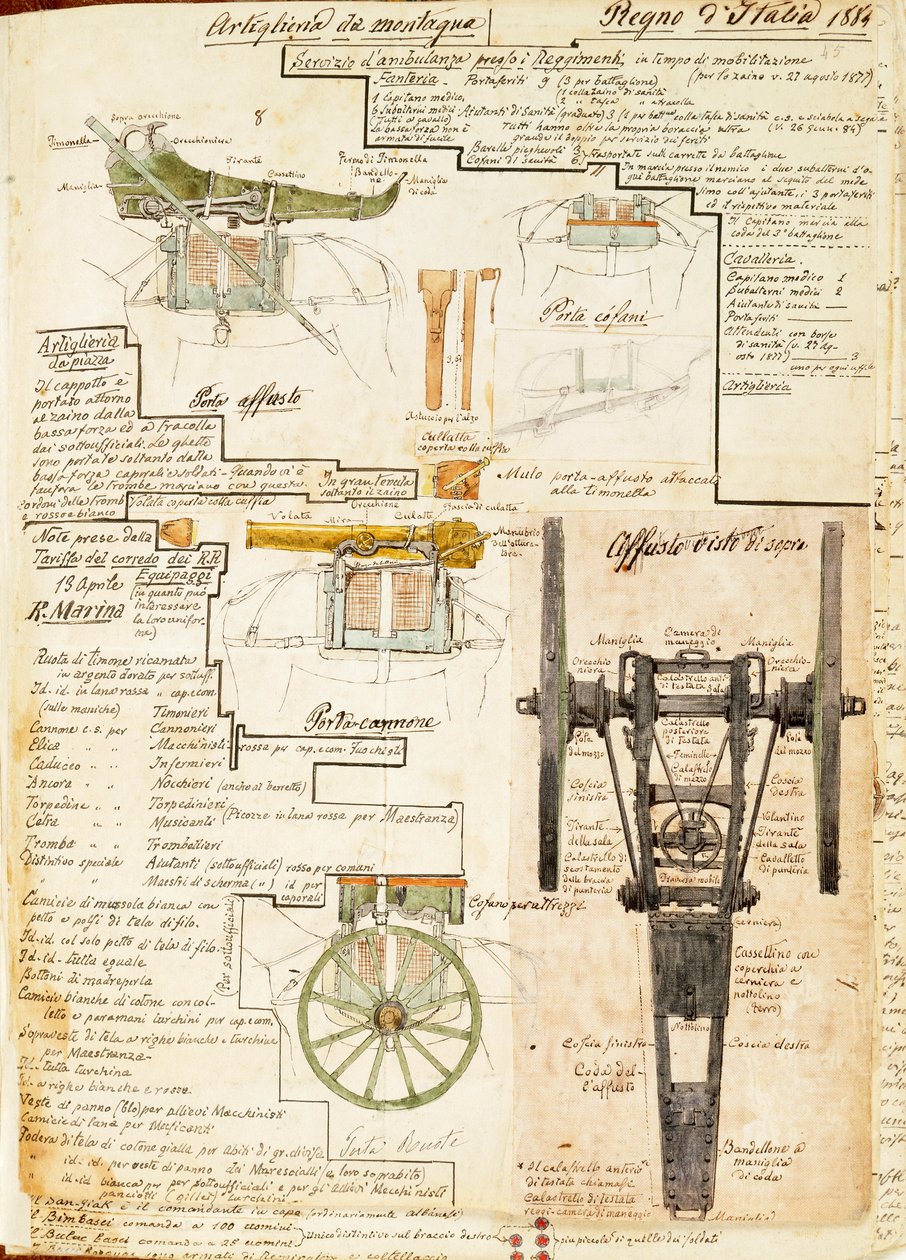 Artiglieria da montagna
Regno d'Italia 1884
45
Servizio d'ambulanza presso i Reggimenti, in tempo di mobilitazione
Fanteria - Portaferiti 9 (3 per battaglione)
(per lo zaino v. 27 agosto 1877)
1 Capitano medico,
(1 colla zaino di sanità
2 " tasca " a tracolla
Aiutanti di Sanità (graduato) 3 (1 per batt.
colla tasca di sanità c.s. e sciabola a
(Tutti a cavallo)
Tutti hanno oltre la propria boraccia altra
(V. 26 Genn. 84)
La bassa forza non è
armata di fucile
grande il doppio per servizio dei feriti
Barelle pieghevoli 3
Cofani di sanità 6
Trasportate sulle carrette da battaglione
In marcia presso il nemico i due subalterni d'o-
gni battaglione marciano al seguito del mede
simo coll'aiutante, i 3 portaferiti
ed il rispettivo materiale
Il Capitano marcia alla
coda del 3° battaglione
Cavalleria.
Capitano medico 1
Subalterni medici 2
Aiutante di sanità —
Portaferiti —
Attendenti con borse
di sanità (v. 27 ag-
osto 1877) 3
uno per ogni uffle
Artiglieria
8
Sopra orecchione
Timonella
Orecchioniera
Tirante
Cassettino
Fermo di Timonella
Bandello-
ne
Maniglia
di coda
Maniglia
Porta affusto
Porta cofani
3,64
Astuccio per l'alzo
Culatta
coperta colla cuffia
Mulo porta-affusto attaccato
alla timonella
Artiglieria
da piazza
Il cappotto è
portato attorno
al zaino dalla
bassa forza ed a tracolla
dai sottoufficiali. Le ghette
sono portate soltanto dalla
bassa forza caporali e soldati - Quando vi è
fanfara le trombe marciano con questa.
Cordoni delle trombe
rosso e bianco
In gran tenuta
soltanto il zaino
Volata coperta colla cuffia
Volata
Mira
Orecchione
Culatta
Fascia di culatta
Manubrio
dell'ottura-
tore.
Porta-cannone
Note prese dalla
Tariffa del corredo dei R.R.
Equipaggi
13 Aprile
R. Marina
(in quanto può
interessare
la loro unifor
me)
Ruota di timone ricamata
in argento dorato per sottuff.
Id. id. in lana rossa " cap. e com
(sulle maniche) Timonieri
Cannone c.s. per Cannonieri
Elica " " Macchinisti
rossa per cap. e com. Fuochisti
Caduceo " " Infermieri
Ancora " " Nocchieri (anche al berretto)
Torpedine " " Torpedinieri
Cetra " " Musicanti
(Picozze in lana rossa per Maestranza)
Tromba " " Trombettieri
Distintivo speciale Aiutanti (sottoufficiali) rosso per comuni
" " Maestri di scherma (") id per
caporali
Camicie di mussola bianca con
petto e polsi di tela di filo.
Id. id. col solo petto di tela di filo.
Id. id. tutta eguale
Bottoni di madreperla
(Per sottoufficiali)
Camicie bianche di cotone con col-
letto e paramani turchini per cap. e com.
Sopraveste di tela a righe bianche e turchine
per Maestranza
Id. tutta turchina
Id. a righe bianche e rosse
Veste di panno (blo) per allievi Macchinisti
Camicie di lana per Musicanti
Fodera di tela di cotone gialla per abiti di gr. divisa
" id. id. per veste di panno dei Marescialli e loro soprabito
" id. id. bianca per per sottoufficiali e per gli Allievi Macchinisti
panciotti (gillet) turchini
Il Sangiak è il comandante in capo (ordinariamente albanesi)
Il Bimbasci comanda a 100 uomini
Il Buluc basci comanda a 25 uomini
Unico distintivo sul braccio destro
più piccole di quelle dei soldati
Cofano per attrezzi
Porta Ruote
Affusto visto di sopra
Maniglia
Camera di
maneggio
Maniglia
Orecchio-
niera
Calastrello anti-
di testata
Sala
Orecchio-
niera
Calastrello
posteriore
di testata
del mozzo
del mozzo
Feminelle
Calastrello
di mezzo
Coscia
sinistra
Coscia
destra
Volantino
Tirante
della sala
Tirante
della sala
Calastrello di
scostamento
delle braccia
di punteria
Cavalletto
di punteria
Traversa mobile
(cerniera)
Cassettino con
coperchio a
cerniera e
nottolino
(ferro)
Nottolino
Coscia sinistra
Coscia destra
Coda del-
l'affusto
Bandellone a
maniglia
di coda
* Il calastrello anteriore
di testata chiamasi
Calastrello di testata
reggi-camera di maneggio